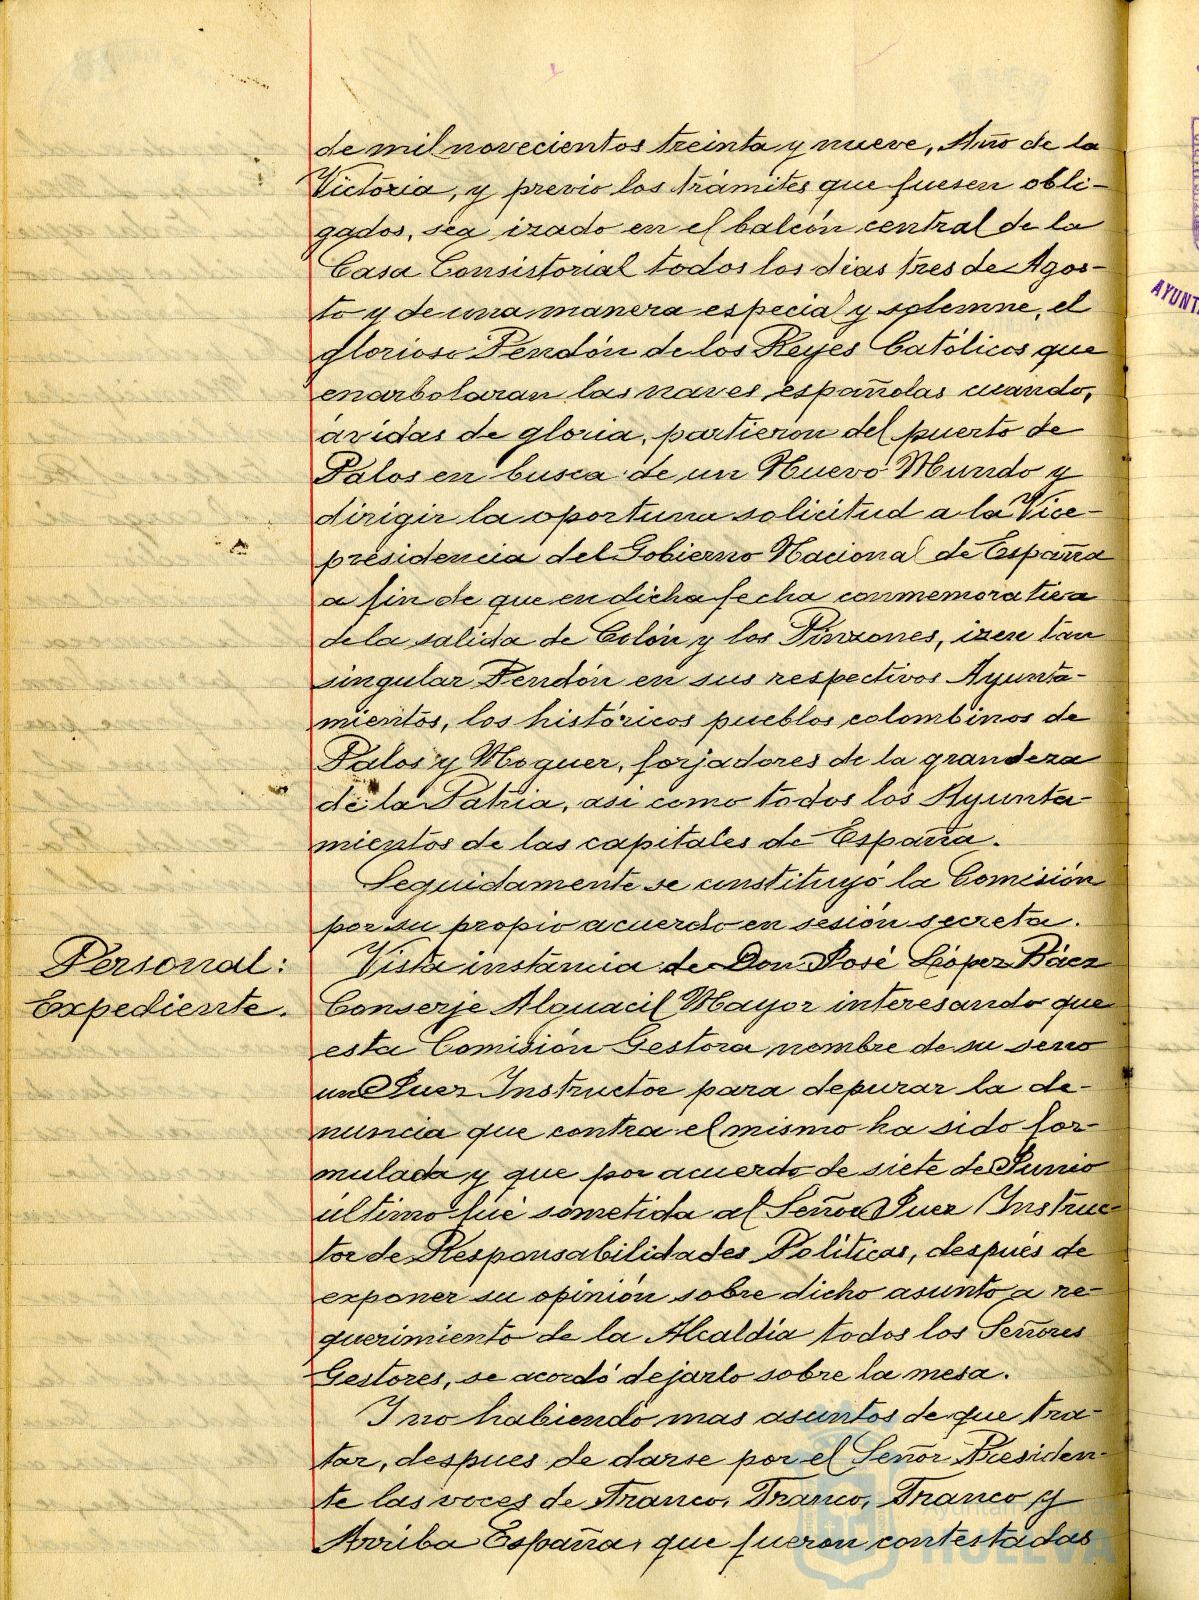 de mil novecientos treinta y nueve, Año de la
Victoria, y previo los trámites que fuesen obli-
gados, sea izado en el balcón central de la
Casa Consistorial todos los dias tres de Agos-
to y de una manera especial y solemne, el
glorioso Pendón de los Reyes Católicos que
enarbolaran las naves españolas cuando,
ávidas de gloria, partieron del puerto de
Palos en busca de un Nuevo Mundo y
dirigir la oportuna solicitud a la Vice-
presidencia del Gobierno Nacional de España
a fin de que en dicha fecha conmemorativa
de la salida de Colón y los Pinzones, izen tan
singular Pendón en sus respectivos Ayunta-
mientos, los históricos pueblos colombinos de
Palos y Moguer, forjadores de la grandeza
de la Patria, asi como todos los Ayunta-
mientos de las capitales de España.
Seguidamente se constituyó la Comisión
por su propio acuerdo en sesión secreta.
Personal:
Expediente.
Vista instancia de Don José López Báez
Conserje Alguacil Mayor interesando que
esta Comisión Gestora nombre de su seno
un Juez Instructor para depurar la de-
nuncia que contra el mismo ha sido for-
mulada y que por acuerdo de siete de Junio
último fué sometida al Señor Juez Instruc-
tor de Responsabilidades Politicas, después de
exponer su opinión sobre dicho asunto a re-
querimiento de la Alcaldía todos los Señores
Gestores, se acordó dejarlo sobre la mesa.
Y no habiendo mas asuntos de que tra-
tar, despues de darse por el Señor Presiden-
te las voces de Franco, Franco, Franco y
Arriba España, que fueron contestadas
Ayuntamiento de
HUELVA
AYUNT